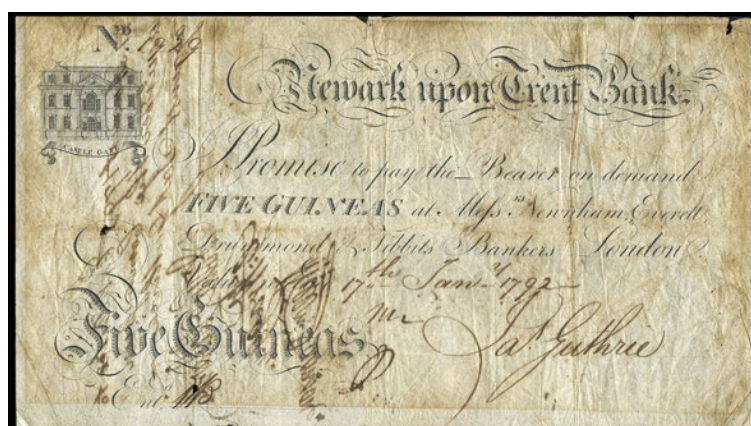 No. 1929
Newark upon Trent Bank
CASTLE GATE
I Promise to pay the Bearer on demand
FIVE GUINEAS at Messrs Newnham, Everett
Drummond & Tibbits Bankers London
17th Jany 1792
Five Guineas
Jas. Guthrie
Entd